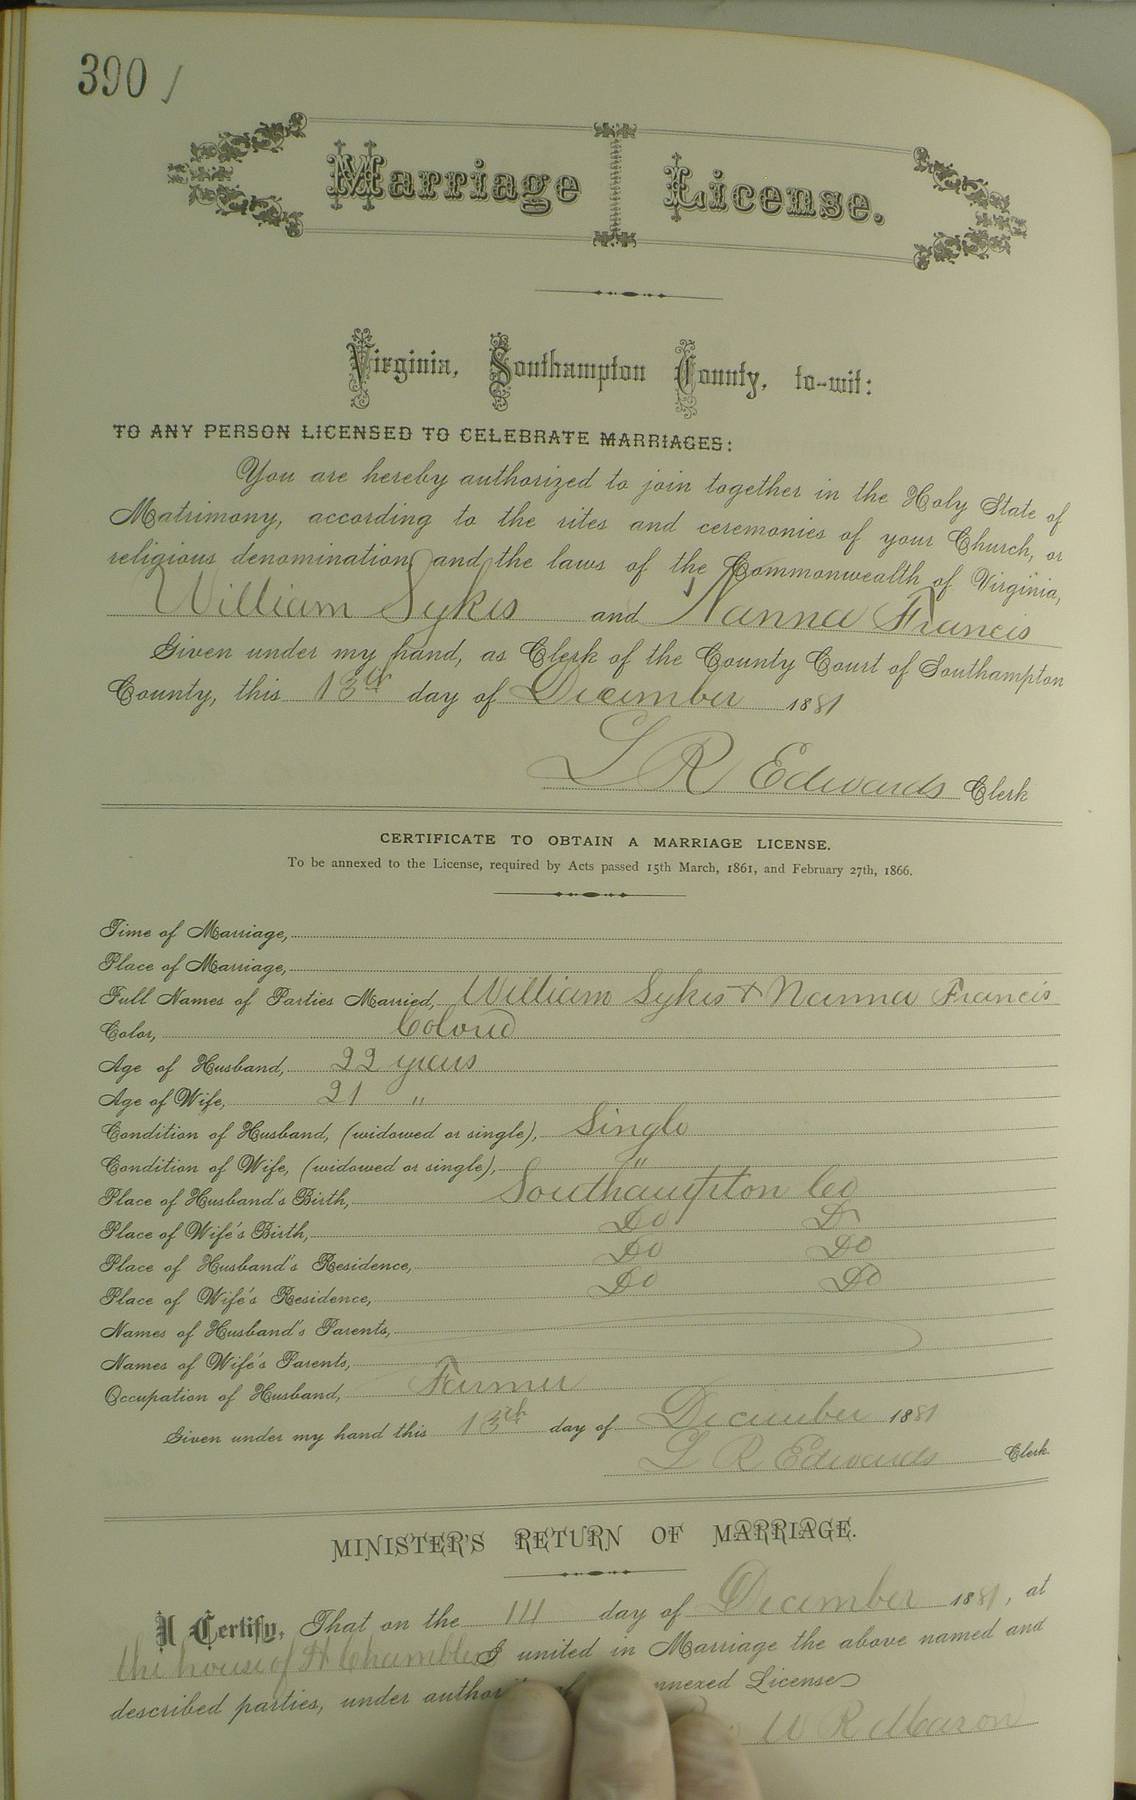 390
Marriage License.
Virginia, Southampton County, to-wit:
TO ANY PERSON LICENSED TO CELEBRATE MARRIAGES:
You are hereby authorized to join together in the Holy State of
Matrimony, according to the rites and ceremonies of your Church, or
religious denomination, and the laws of the Commonwealth of Virginia,
William Sykes and Nanna Francis
Given under my hand, as Clerk of the County Court of Southampton
County, this 13th day of December 1881
L R Edwards Clerk
CERTIFICATE TO OBTAIN A MARRIAGE LICENSE.
To be annexed to the License, required by Acts passed 15th March, 1861, and February 27th, 1866.
Time of Marriage,
Place of Marriage,
Full Names of Parties Married, William Sykes & Nanna Francis
Color, Colored
Age of Husband, 22 years
Age of Wife, 21 "
Condition of Husband, (widowed or single), Single
Condition of Wife, (widowed or single), "
Place of Husband's Birth, Southampton Co
Place of Wife's Birth, Do Do
Place of Husband's Residence, Do Do
Place of Wife's Residence, Do Do
Names of Husband's Parents,
Names of Wife's Parents,
Occupation of Husband, Farmer
Given under my hand this 13th day of December 1881
L R Edwards Clerk
MINISTER'S RETURN OF MARRIAGE.
I Certify, That on the day of December 1881, at
the house of H Chambless I united in Marriage the above named and
described parties, under annexed License
W R Mason